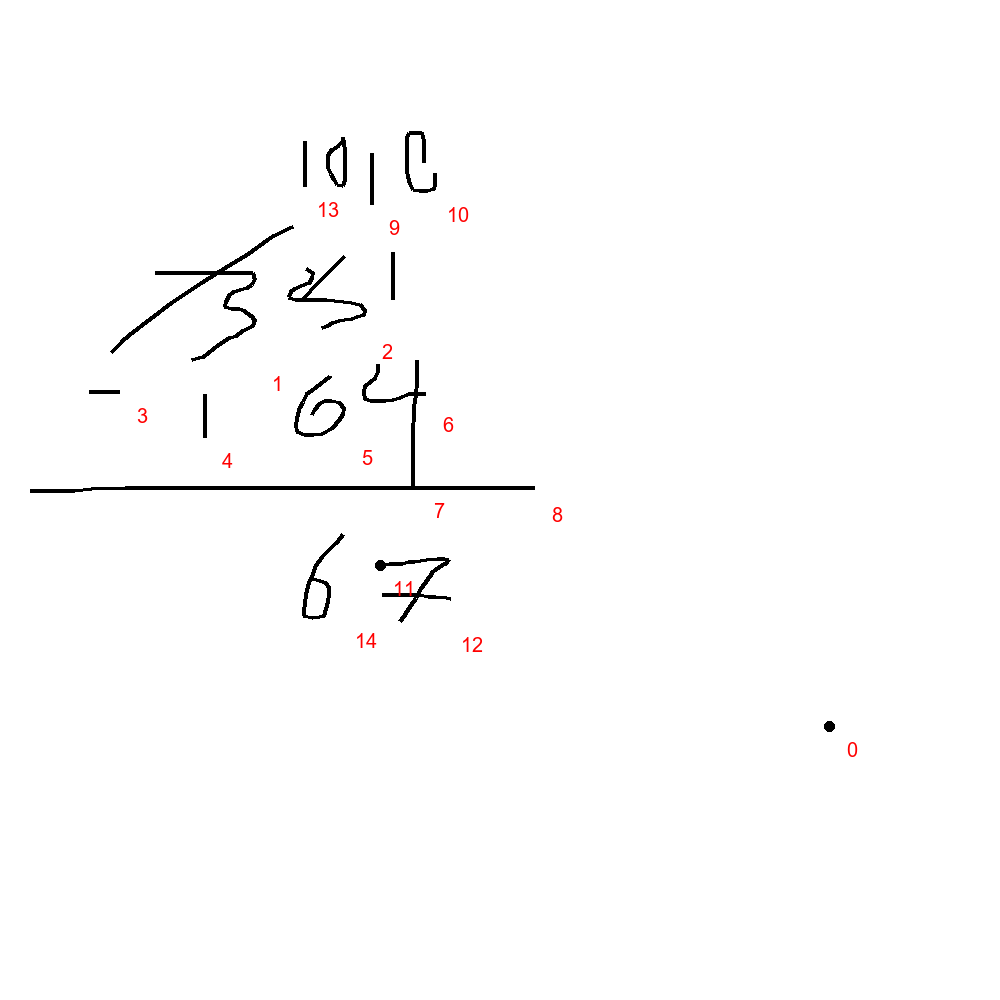 10 10
13 9 10
3 3 1
1 2
- 1 6 4
3 4 5 6
7 8
6 7
11
14 12
0